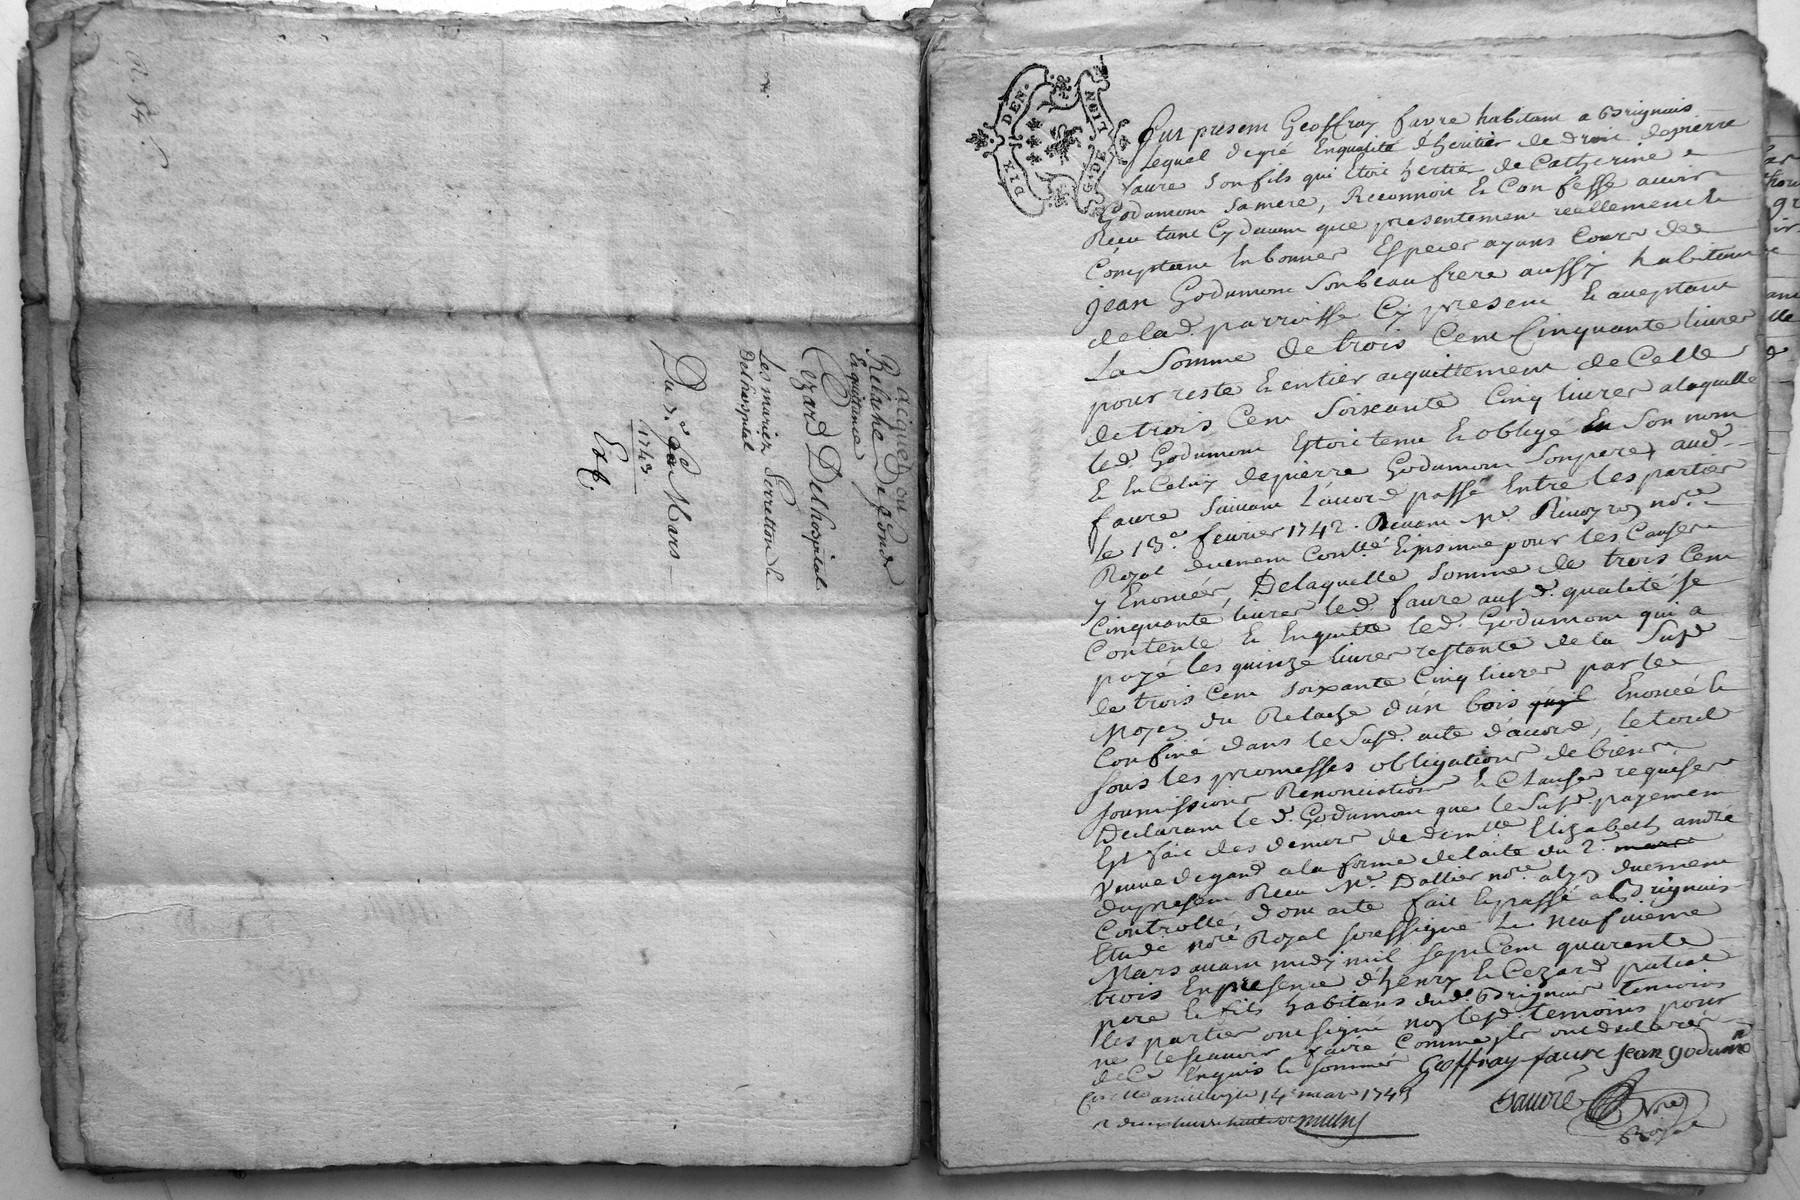 R. 54.
acigned ou
Relache De fonds
En quittance
Cezard Delhospital
Les mariez Serretton &
Delhospital
Du 7.e Mars
1743
Exb.
DIX DEN.
G. DE LION
Fut present Geoffray favre habitant a Brignais
lequel de gré En qualité d'heritier de droit de pierre
faure Son fils qui Etoit hertier de Catherine
Godumont Sa mere, Reconnoit & Confesse avoir
Receu tant Cy devant que presentement reellement &
Comptant En bonnes Especes ayans Cours de
jean Godumont Son beau frere aussy habitant
de lad. parroisse Cy present & aceptant
La Somme de trois Cent Cinquante livres
pour reste & entier aquittement de Celle
de trois Cent Soixante Cinq livres a laquelle
led. Godumont Estoit tenu & obligé En Son nom
& En Celuy de pierre Godumont Son pere, aud.
faure Suivant l'acord passé Entre les parties
le 13.e fevrier 1742. Devant M.e no.re
Royal duement Con.llé & insinué pour les Causes
y Enoncées, De laquelle Somme de trois Cent
Cinquante livres led. faure ausd. qualité Se
Contente & En quitte led. Godumont qui a
payé les quinze livres restante de la Susd.
de trois Cent Soixante Cinq livres par le
Moyen du Relache d'un bois Enoncé &
Confiné dans le Susd. acte d'acord, le tout
Sous les promesses obligations de biens
Soumissions Renonciations & Clauses requises
Declarant le d. Godumont que le Susd. payement
Est fait des deniers de dem.lle Elizabeth andré
Veuve Degand a la forme de l'acte du 2. mars
du present Receu M.e Dallier no.re a Lyon duement
Controllé, dont acte fait & passé a Brignais
Etude no.re Royal Soussigné Le neufvieme
Mars avant midy mil Sept Cent quarente
trois En presence d'henry & Cezard
pere & fils habitans dud. Brignais temoins
les parties ont Signé non lesd. temoins pour
ne le Scavoir faire Comme ils ont declarés
de Ce Enquis & Sommés Geoffray faure jean godumon
Con.llé a millery le 14 mars 1743